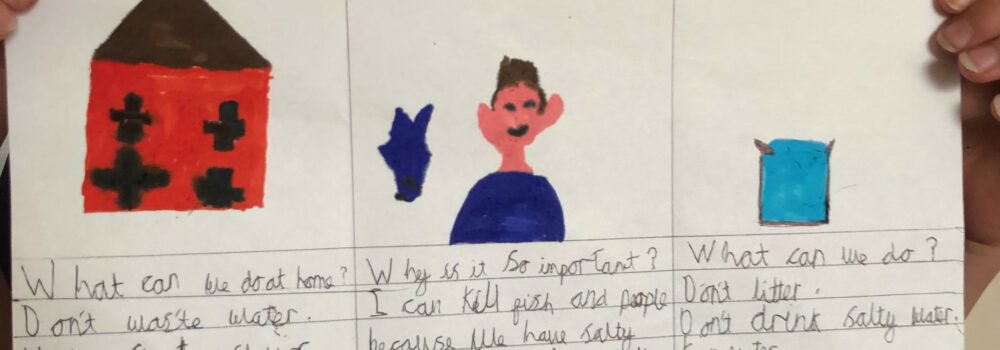 What can we do at home?
Don't waste water.
Why is it so important?
I can kill fish and people
because we have salty
What can we do?
Don't litter.
Don't drink salty water.